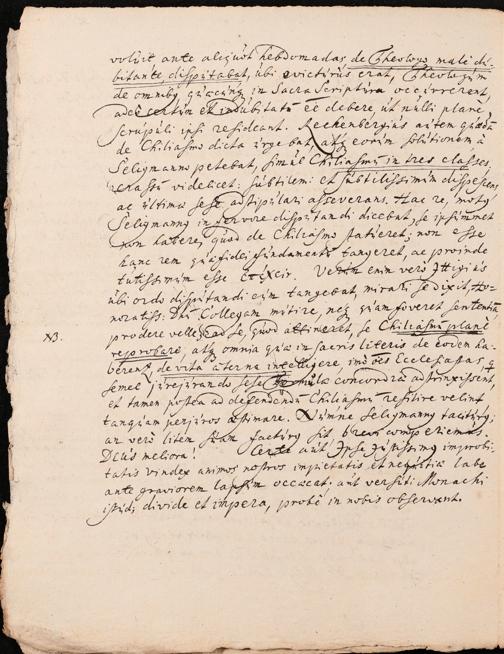 voluit ante aliquot hebdomadas, de Theologo malè du-
bitante, disputabat, ubi evicturus erat, Theologum
de omnibq quæcunq in Sacra Scriptura occurrerent,
adeò certum et indubitatū eē debere, ut nulli planè
scrupuli ipsi resideant. Rechenbergius autem quædā
de Chiliasmo dicta urgebat, atq eorum solutionem à
Seligmanno petebat, simul Chiliasmū in tres classes,
crassū videlicet; subtilem; et subtilissimum dispescens
ac ultimæ sese adstipulari asseverans. Hac re, motq
Seligmannq in fervore disputandi dicebat, se ipsummet
non latere, quod de Chiliasmo statueret; non esse
hanc rem quæ fidei fundamentū tangeret, ac proinde
tutissimum esse ἐπέχειν. Verùm enim verò Ittigius
ubi ordo disputandi eum tangebat, mirari se dixit, Ho-
noratiss: Dn Collegam mutire, neq quam foveret sententiā
NB. prodere velle, ad se, quod attineret, se Chiliasmū planè
reprobare, atq omnia quæ in sacris literis de eodem ha-
berent, de vita æterna intelligere, imò oēs Ecclesiastas q
semel jurejurando sese Formulæ concordiæ adstrinxissent,
et tamen postea ad defendendū Chiliasmū resilire velint
tanquam perjuros æstimare. Numne Seligmannq taciturq;
an verò litem suam facturq sit, brevi comperiemus.
DEUS meliora! Certè aut Ipse Justissimq improbi-
tatis vindex animos nostros impietatis et nequitiæ labe
ante graviorem lapsum occæcat; aut versuti Monachi
istud; divide et impera, probè in nobis observant.